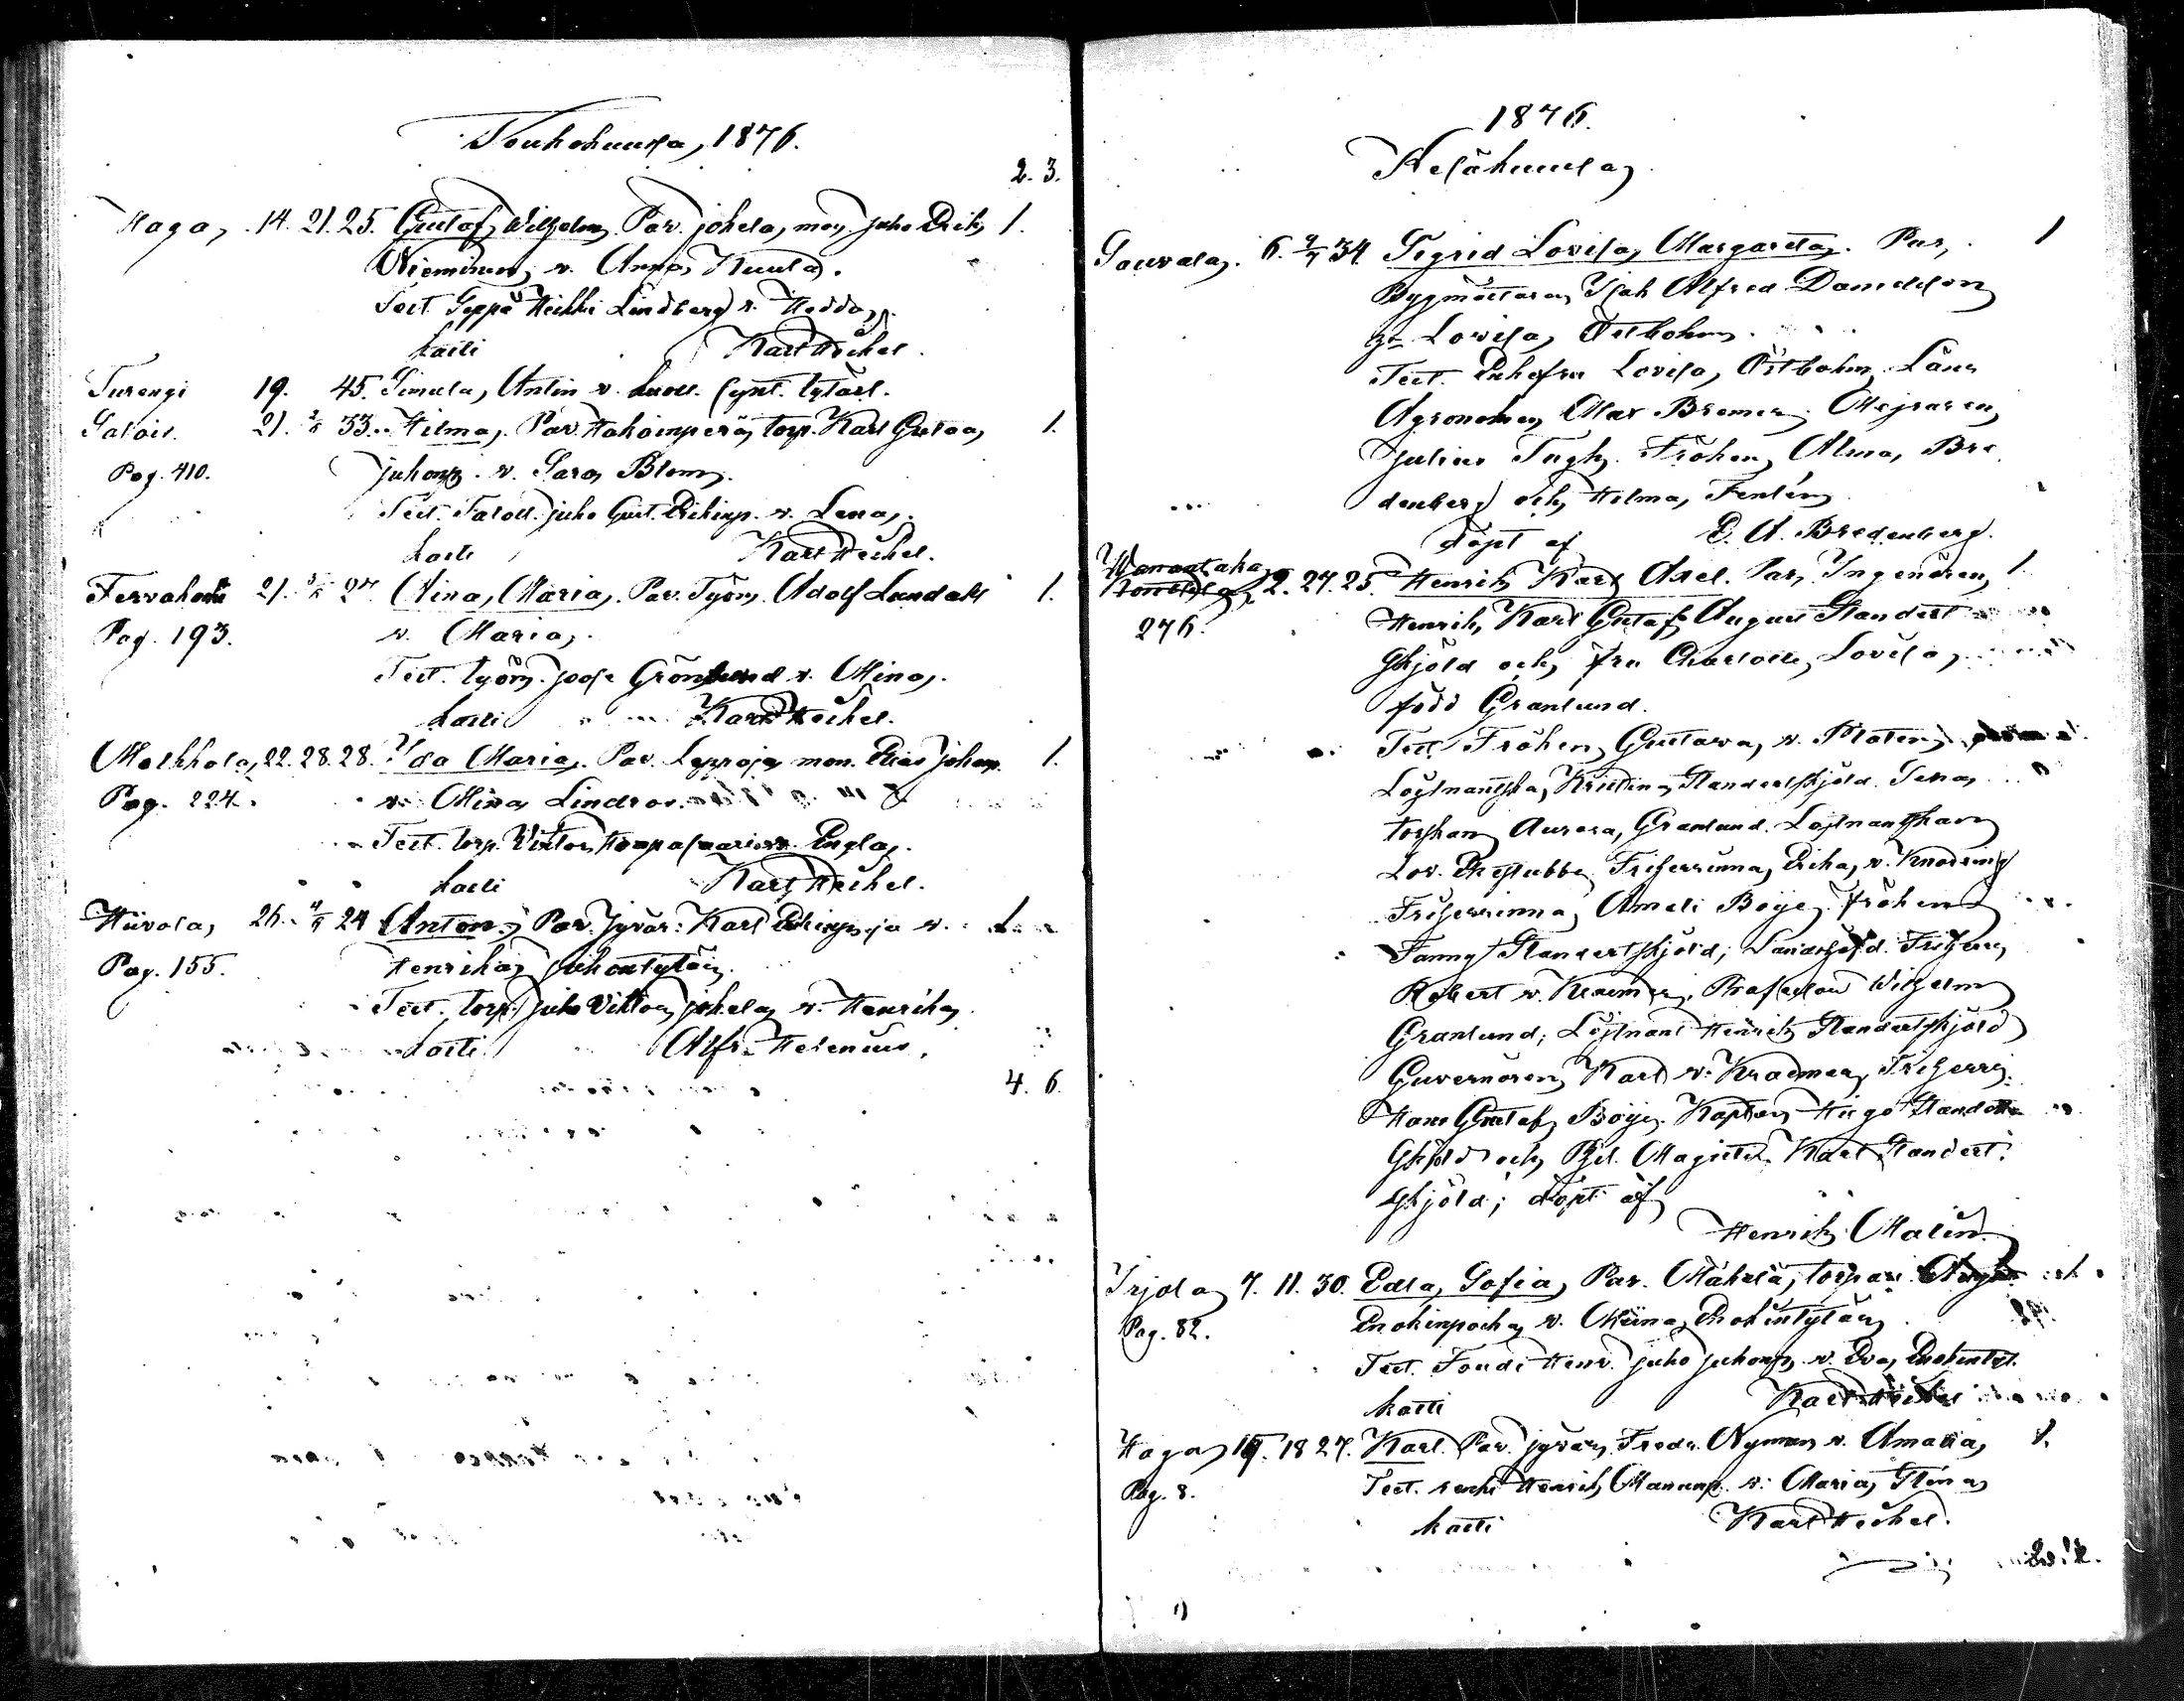 Toukokuussa, 1876.
2. 3.
Haga, 14. 21. 25. Gustaf Wilhelm. Par. johela, mög. Juho Erik 1.
Nieminen v. Anna Kuula.
Test. Seppä Heikki Lindberg v. Hedda,
kasti Karl Heikel.
Turengi 19. 45. Simula, Antin v. kuoll. synt. tytärl.
Salois. 21. 2/6 33. Hilma, Par. Hakoinperä, torp. Karl Gustaa 1.
Pag. 410. juhonp. v. Sara Blom.
Test. Taloll. juho Gust. Erikinp. v. Lena,
kasti Karl Heikel.
21. 5/6 27. Mina, Maria, Par. Työm. Adolf Lundahl 1.
Pag. 193. v. Maria,
Test. työm. Joose Grönlund v. Mina,
kasti Karl Heikel.
Melkkola, 22. 28. 28. Ida Maria, Par. Leppoja, mon. Elias Johan. 1.
Pag. 224. v. Mina Lindroo.
Test. torp. Viktor Haapasaari v. Engla,
kasti Karl Heikel.
Hiivola, 26. 4/6 24 Anton, Par. Jyvär. Karl v. 1.
Pag. 155. Henrika Juhontytär.
Test. torp. juho Viktor johela v. Henrika
kasti Alfr. Helenius.
4. 6.
1876.
Kesäkuussa
Sauvala, 6. 9/7 34 Sigrid Lovisa, Margareta, Par, 1
Byggmästaren Isak Alfred Danielson
Lovisa, Östbohm.
Test. Enkefru Lovisa, Östbohm, Läns
Agronomen Max Bremer, Mejraren
Julius Fröken Alma, Bre
denberg och Hilma, Fenlén
Döpt af E. A. Bredenberg.
Wanantaka
2. 27. 25. Henrik Karl Axel. Par, Ingeniören 1.
276. Henrik, Karl Gustaf August Standert
skjöld och fru Charlotte, Lovisa,
född Granlund.
Test. Fröken, Gustava, v. Platen,
Löjtnantska, Kristina Standertskjöld.
Aurora, Granlund. Löjtnantskan
Lov. Ehrnstubbe, Friherrinna, Erika, v. Knorring
Friherrinna, Ameli Boije, fröken
Fanny Standertskjöld; Landshöfd. Friherre
Robert v. Kraemer, Professor Wilhelm
Granlund; Löjtnant Henrik Standertskjöld
Guvernören Karl v. Kraemer, Friherre
Hans Gustaf Boije, Kapten Hugo Standert
skjöld och Fil. Magister Karl Standert.
skjöld; döpt af
Henrik Malin.
Irjola, 7. 11. 30. Edla, Sofia, Par. Mäkelä, torpari
Pag. 82. Enokinpoika v. Miina, Enokintytär
Test. Juho Juhonp. v. Eva, Enokintyt.
kasti Karl Heikel
Haga, 18 27. Karl. Par. jyvär. Fredr. Nyman v. Amalia, 1.
Pag. 8. Test. renki Henrik Manunp. v. Maria Stina
kasti Karl Heikel.